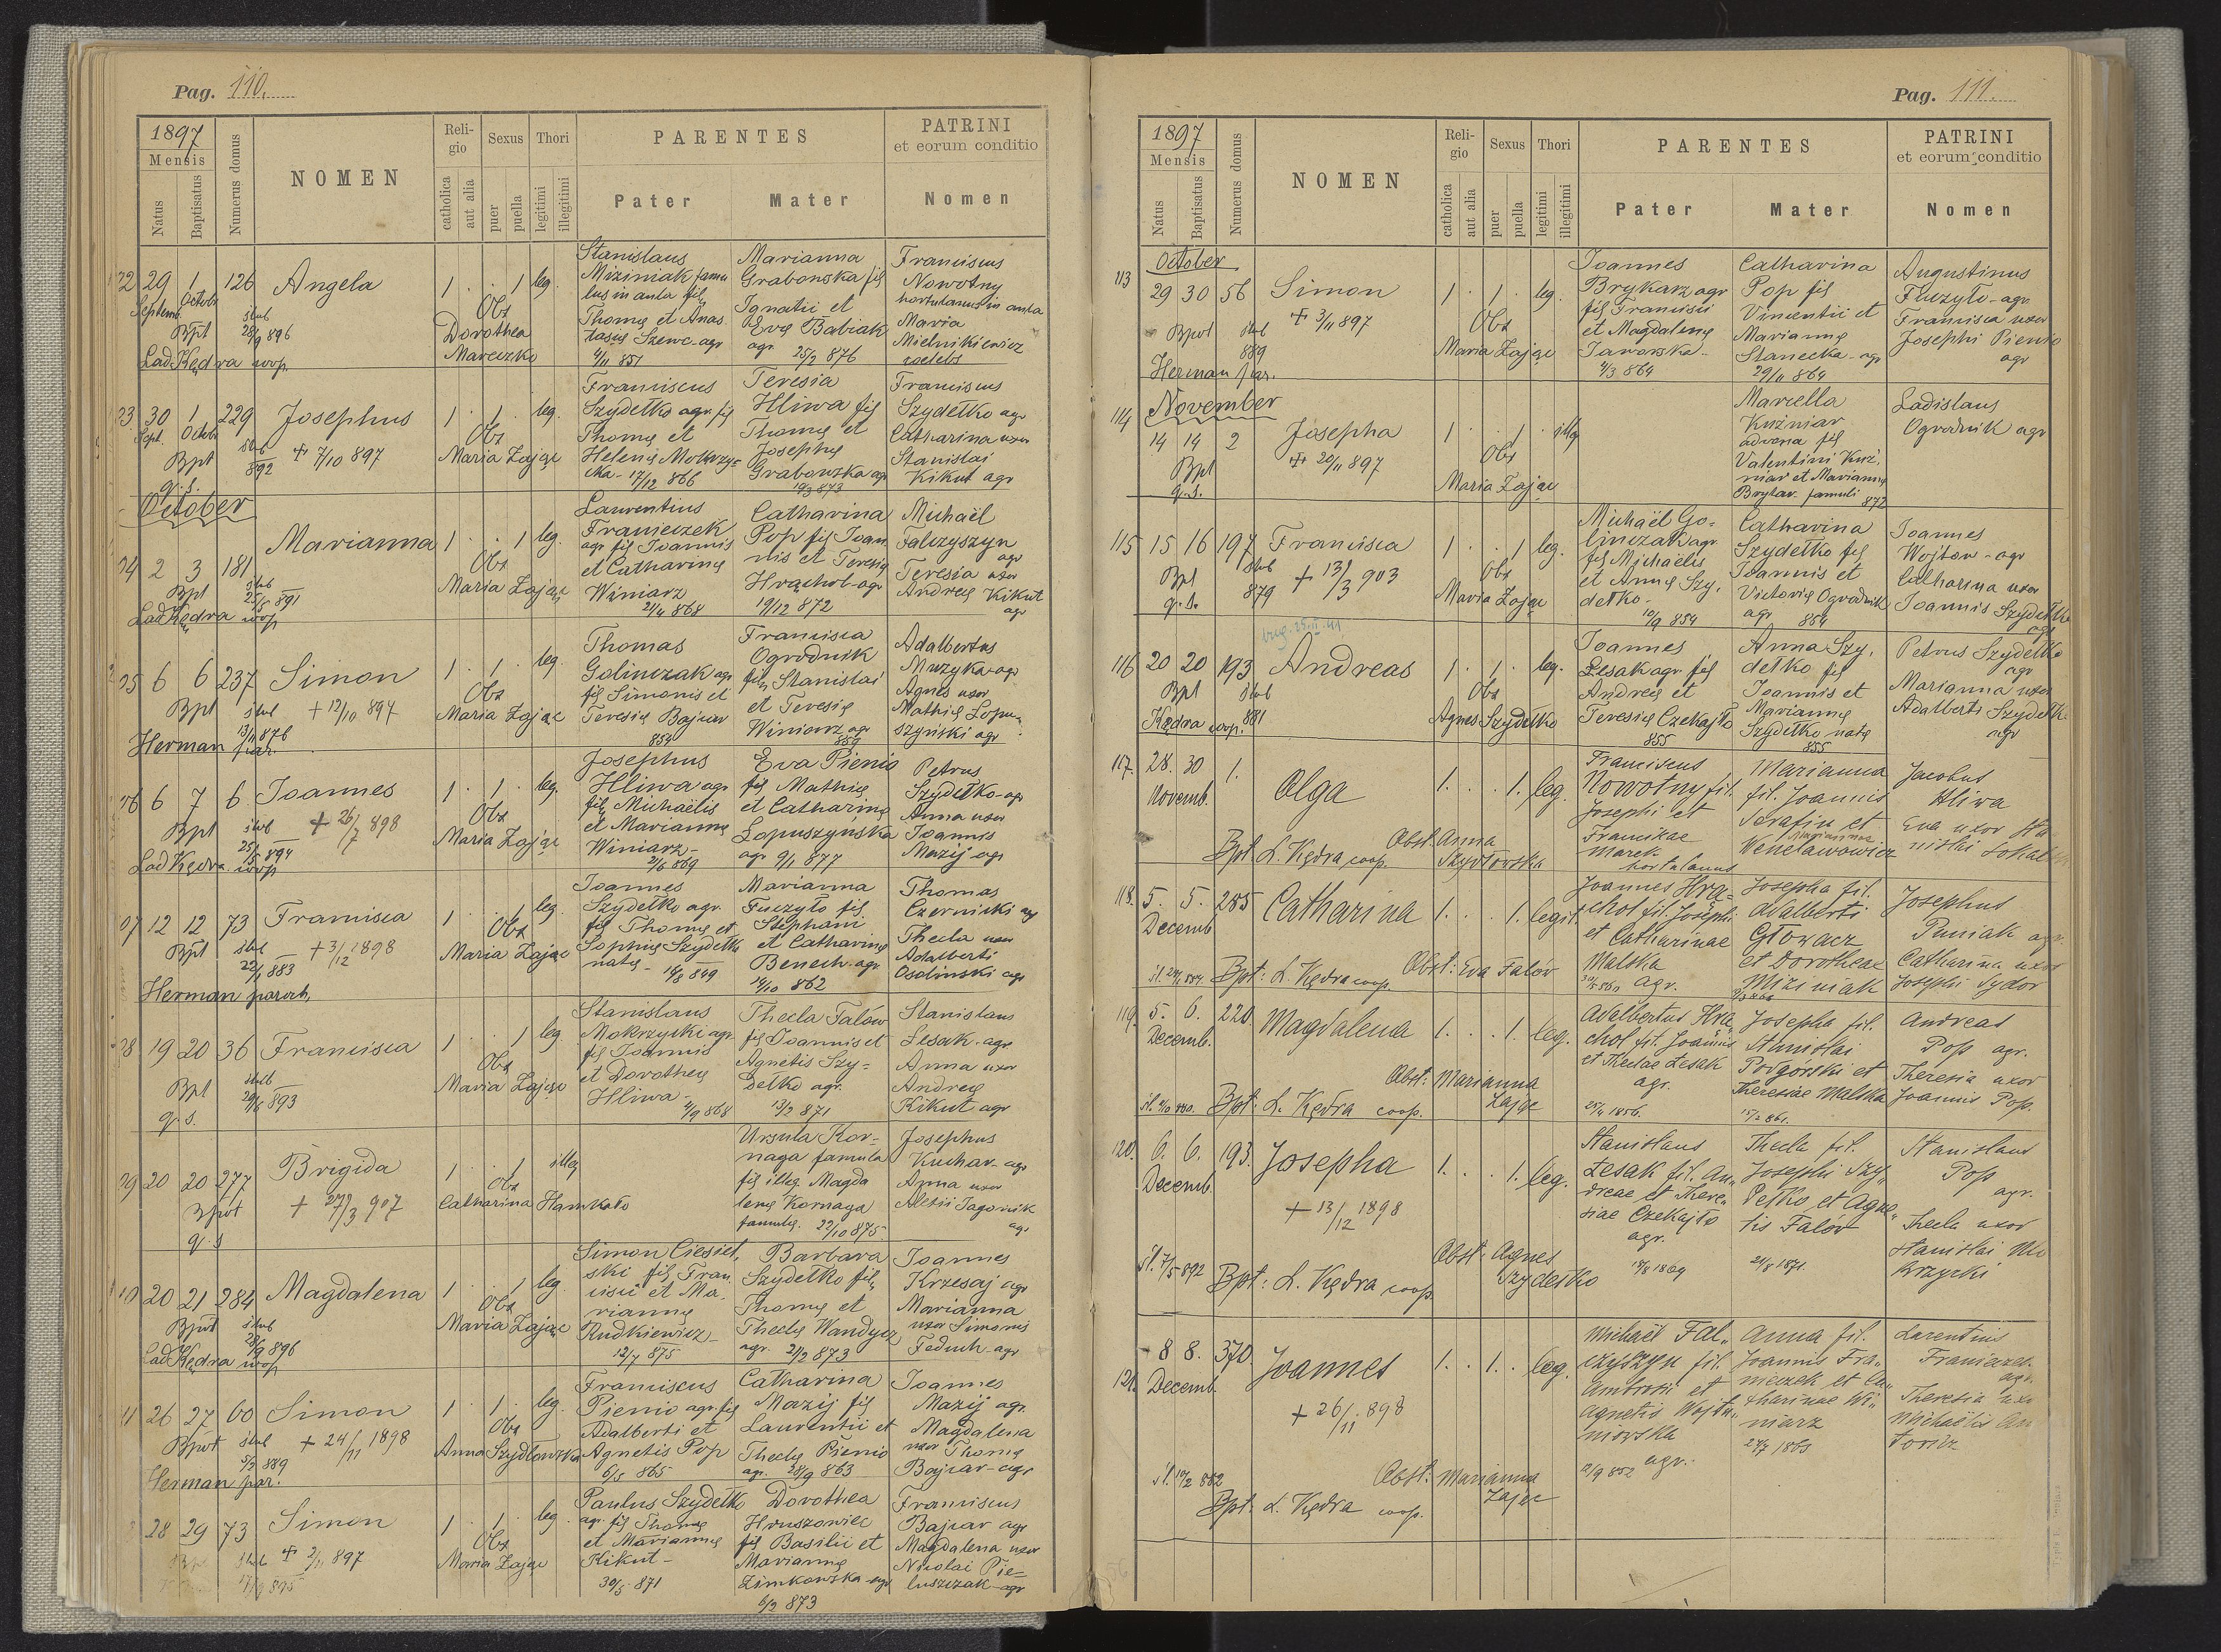 Pag. 110.
1897
Mensis
Natus
Baptisatus
Numerus domus
NOMEN
Religio
catholica
aut alia
Sexus
puer
puella
Thori
legitimi
illegitimi
PARENTES
Pater
Mater
PATRINI
et eorum conditio
Nomen
29 1 126 Angela 1 . . 1 leg.
Septemb. Octobr.
Bpt
Lad. Kędra coop.
Obs
Dorothea
Stanislaus
Miziniak famu
lus in aula fil
Thomę et Anas
tasię Szewc agr
Marianna
Grabowska fil
Ignatii et
Evę Babiak
agr. 25/2 876
Franciscus
Nowotny
hortulanus in aula
Maria
Mielnikiewicz
coelebs
30 1 229 Josephus 1 . 1 . leg.
Sept. Octob.
Bpt 892 + 7/10 897
q. s.
Obs
Maria Zając
Franciscus
Szydełko agr. fil
Thomę et
Helenę Mokrzy=
cka - 17/12 866
Teresia
Hliwa fil
Thomę et
Josephę
Grabowska agr
Franciscus
Szydełko agr
Catharina uxor
Stanislai
Kikut agr
October
2 3 181 Marianna 1 . . 1 leg.
Bpt
Lad Kędra coop
Obs
Maria Zając
Laurentius
Franieczek
agr fil Joannis
et Catharinę
Winiarz
21/4 868
Catharina
Pop fil Joan
nis et Teresię
Hrachol agr
19/12 872
Michaël
Falczyszyn
agr
Teresia uxor
Andreę Kikut
agr
6 6 237 Simon 1 . 1 . leg.
Bpt + 12/10 897
Herman par.
Obs
Maria Zając
Thomas
Golinczak agr
fil Simonis et
Teresię Bajcar
854
Francisca
Ogrodnik
fil Stanislai
et Teresię
Winiarz agr
859
Adalbertus
Muzyka agr
Agnes uxor
Mathię Łopu=
szyński agr
6 7 6 Joannes 1 . 1 . leg.
Bpt + 26/7 898
Lad Kędra coop
Obs
Maria Zając
Josephus
Hliwa agr
fil Michaëlis
et Mariannę
Winiarz -
2/6 869
Eva Pienio
fil Mathię
et Catharinę
Łopuszynska
agr 9/1 877
Petrus
Szydełko agr
Anna uxor
Joannis
Mazij agr
12 12 73 Francisca 1 . . 1 leg.
Bpt 883 + 3/12 1898
Herman paroch.
Obs
Maria Zając
Joannes
Szydełko agr.
fil Thomę et
Sophię Szydełko
natę -
Marianna
Fuczyło fil
Stephani
et Catharinę
Benech agr
Thomas
Czernicki agr
Thecla uxor
Adalberti
Osolinski agr
19 20 36 Francisca 1 . . 1 leg.
Bpt 893
q. s.
Obs
Maria Zając
Stanislaus
Mokrzycki agr.
fil Joannis
et Dorotheę
Hliwa -
4/9 868
Thecla Falów
fil Joannis et
Agnetis Szy=
dełko agr.
13/2 871
Stanislaus
Lesak agr
Anna uxor
Andreę
Kikut agr
20 20 277 Brigida 1 . . 1 illeg
Bpt + 27/3 907
q. s
Obs
Catharina
Ursula Kor=
naga famula
fil illeg Magda
lenę Kornaga
famulę. 22/10 875
Josephus
Kuchar agr
Anna uxor
agr
20 21 284 Magdalena 1 . . 1 leg.
Bpt
Lad Kędra coop
Obs
Maria Zając
Simon Ciesiel.
ski fil Fran
cisci et Ma.
riannę
Rudkiewicz -
12/7 875
Barbara
Szydełko fil
Thomę et
Theclę Wandycz
agr. 2/2 873
Joannes
Krzesaj agr
Marianna
uxor Simonis
Feduch agr
26 27 60 Simon 1 . 1 . leg.
Bpt + 24/11 1898
889
Herman par.
Obs
Anna Szydłowska
Franciscus
Pienio agr. fil
Adalberti et
Agnetis Pop
6/5 865
Catharina
Mazij fil
Laurentii et
Theclę Pienio
agr. 28/9 863
Joannes
Mazij agr.
Magdalena
uxor Thomę
Bajcar agr
28 29 73 Simon 1 . 1 . leg.
+ 2/11 897
Obs
Maria Zając
Paulus Szydełko
agr. fil Thomę
et Mariannę
Kikut -
30/5 871
Dorothea
Hruszowiec
fil Basilii et
Mariannę
Zimkowska agr
6/2 873
Franciscus
Bajcar agr
Magdalena uxor
Nicolai Pie=
luszczak agr
Pag. 111.
1897
Mensis
Natus
Baptisatus
Numerus domus
NOMEN
Religio
catholica
aut alia
Sexus
puer
puella
Thori
legitimi
illegitimi
PARENTES
Pater
Mater
PATRINI
et eorum conditio
Nomen
October
113 29 30 56 Simon 1 . 1 . leg.
+ 3/11 897
889
Herman par.
Obs
Maria Zając
Joannes
Brykarz agr
fil Francisci
et Magdalenę
Jaworska -
4/3 864
Catharina
Pop fil
Vincentii et
Mariannę
Stanecka agr
29/11 864
Augustinus
Fuczyło agr
Francisca uxor
Josephi Pienio
agr
November
114 14 14 2 Josepha 1 . . 1 . illeg
Bpt + 20/11 897
q. s.
Obs
Maria Zając
Mariella
Kuźniar
advena fil
Valentini Kuź.
niar et Mariannę
famuli 872
Ladislaus
Ogrodnik agr
115 15 16 197 Francisca 1 . . 1 leg.
Bpt 879 + 13/3 903
q. s.
Obs
Maria Zając
Michaël Go=
linczak agr.
fil Michaëlis
et Annę Szy.
dełko -
10/9 859
Catharina
Szydełko fil
Joannis et
Victorię Ogrodnik
agr. 854
Joannes
Wojtow - agr
Catharina uxor
Joannis Szydełko
agr
116 20 20 193 Andreas 1 . 1 . leg.
Bpt
Kędra coop. 881
Obs
Agnes Szydełko
Joannes
Lesak agr fil
Andreę et
Teresię Czekajło
855
Anna Szy.
dełko fil
Joannis et
Mariannę
Szydełko natę
855
Petrus Szydełko
agr
Marianna uxor
Adalberti Szydełk
agr
117. 28. 30 1. Olga 1. . . 1. leg.
Novemb.
Bpt. L. Kędra coop.
Obst: Anna
Szydłowska
Franciscus
Nowotny fil.
Josephi et
Franciscae
Marek
hortulanus
Marianna
fil. Joannis
Serafin et
Marianna
Jacobus
Hliwa
Eva uxor Sta
118. 5. 5. 285 Catharina 1. . . 1. legit.
Decemb.
Bpt: L. Kędra coop.
Obst: Eva Falów
Joannes Hra=
chol fil. Josephi
et Catharinae
Malska
agr.
Josepha fil.
Adalberti
Głowacz
et Dorotheae
Miziniak
Josephus
Puniak agr.
Catharina uxor
Josephi Sydor
119. 5. 6. 220. Magdalena 1. . . 1. leg.
Decemb.
Bpt: L. Kędra coop.
Obst: Marianna
Zając
Adalbertus Hra
chol fil. Joannis
et Theclae Lesak
agr.
25/4 1856.
Josepha fil.
Stanislai
Podgorski et
Theresiae Malska
15/2 861.
Andreas
Pop agr.
Theresia uxor
Joannis Pop.
120. 6. 6. 193. Josepha 1. . . 1. leg.
Decemb.
+ 13/12 1898
śl. 7/5 892
Bpt: L. Kędra coop.
Obst: Agnes
Szydełko
Stanislaus
Lesak fil. An„
dreae et There„
siae Czekajło
agr.
Thecla fil.
Josephi Szy„
Petko et Agne„
tis Falów
24/8 1871.
Stanislaus
Pop
agr.
Thecla uxor
Stanislai Mo
krzycki
121. 8 8. 370. Joannes 1. . 1. . leg.
Decemb.
+ 26/11. 898
śl. 12/2 882
Bpt: L. Kędra coop.
Obst: Marianna
Zając
Michaël Fal„
czyszyn fil.
Ambrosii et
Agnetis Wojtu„
morska
agr.
12/9 852
Anna fil.
Joannis Fra„
nieczek et Ca„
tharinae Wi„
niarz
Larentius
Franieczek
agr.
Theresia uxo
Michaëlis An